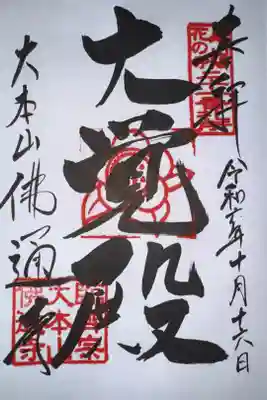 奉拝
令和五年十月十六日
大覚殿
大本山佛通寺
花の寺
臨済宗
大本山
佛通寺